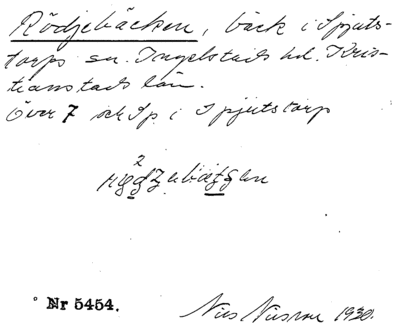 Rödjebäcken, bäck i Spjuts-
torps sn. Ingelstads hd. Kris-
tianstads län.
Över 7 och Sp. i Spjutstorp
Nr 5454.
Nils Nilsson 1930.